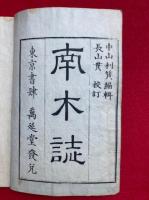 中山利質編輯
長山貫校訂
南木誌
東京書肆 萬延堂發兌